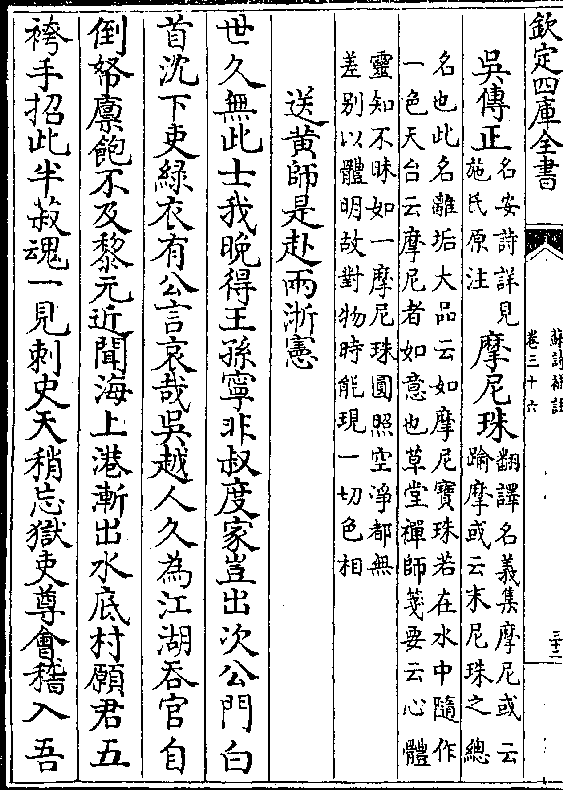 欽定四庫全書
蘇詩補註
卷三十六
三十二
吳傳正
名安詩詳見
施氏原注
摩尼珠
翻譯名義集摩尼或云
踰摩或云末尼珠之總
名也此名離垢大品云如摩尼寶珠若在水中隨作
一色天台云摩尼者如意也草堂禪師箋要云心體
靈知不昧如一摩尼珠圓照空淨都無
差别以體明故對物時能現一切色相
送黄師是赴兩浙憲
世久無此士我晚得王孫寧非叔度家豈出次公門白
首沉下吏綠衣有公言哀哉吳越人久為江湖吞官自
倒帑廩飽不及黎元近聞海上港漸出水底村願君五
袴手招此半菽魂一見刺史天稍忘獄吏尊會稽入吾